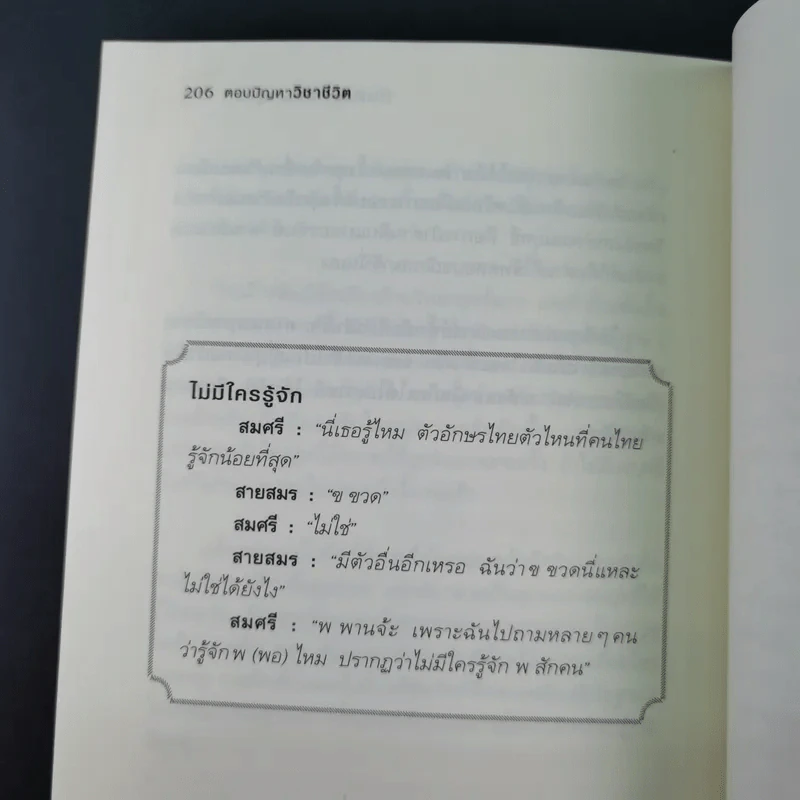 206 ตอบปัญหาวิชาชีวิต
ไม่มีใครรู้จัก
สมศรี : “นี่เธอรู้ไหม ตัวอักษรไทยตัวไหนที่คนไทย
รู้จักน้อยที่สุด”
สายสมร : “ฃ ขวด”
สมศรี : “ไม่ใช่”
สายสมร : “มีตัวอื่นอีกเหรอ ฉันว่า ฃ ขวดนี่แหละ
ไม่ใช่ได้ยังไง”
สมศรี : “พ พานจ้ะ เพราะฉันไปถามหลายๆ คน
ว่ารู้จัก พ (พอ) ไหม ปรากฏว่าไม่มีใครรู้จัก พ สักคน”